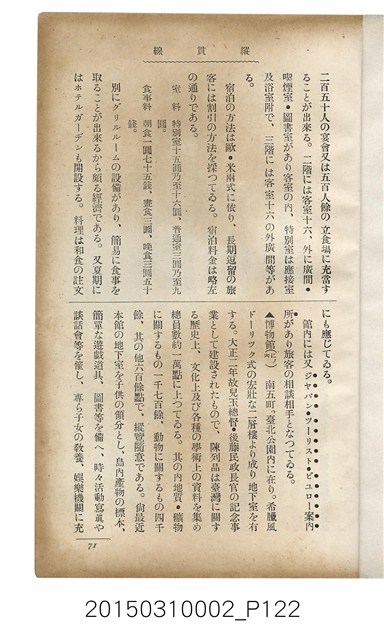 線貫縱
二百五十人の宴會又は五百人餘の立食場に充當す
ることが出來る。二階には客室十六、外に廣間・
喫煙室・圖書室があり客室の内、特別室は應接室
及浴室附で、三階には客室十六の外廣間等があ
る。
宿泊の方法は歐・米兩式に依り、長期逗留の旅
客には割引の方法を採つてゐる。宿泊料金は略左
の通りである。
室料 特別室十五圓乃至十六圓、普通室三圓乃至九
圓。
食事料 朝食一圓七十五錢、晝食三圓、晩食三圓五十
錢。
別にグリルルームの設備があり、簡易に食事を
取ることが出來るから頗る經濟である。又夏期に
はホテルガーデンも開設する。料理は和食の註文
にも應じてゐる。
館内には又ジャパン・ツーリスト・ビューロー案内
所があり旅客の相談相手となつてゐる。
▲博物館 南五町。臺北公園内に在り。希臘風
ドーリック式の宏壯な二層樓より成り地下室を有
する。大正二年故兒玉總督・後藤民政長官の記念事
業として建設されたもので、陳列品は臺灣に關す
る歷史上、文化上及び各種の學術上の資料を集め
總員數約一萬點に上つてゐる。其の内地質・礦物
に關するもの一千七百餘、動物に關するもの四千
餘、其の他六百餘點で、縱覽隨意である。尙最近
本館の地下室を子供の領分とし、島内產物の標本、
簡單な遊戲道具、圖書等を備へ、時々活動寫眞や
談話會等を催し、專ら子女の敎養、娛樂機關に充
71
20150310002_P122